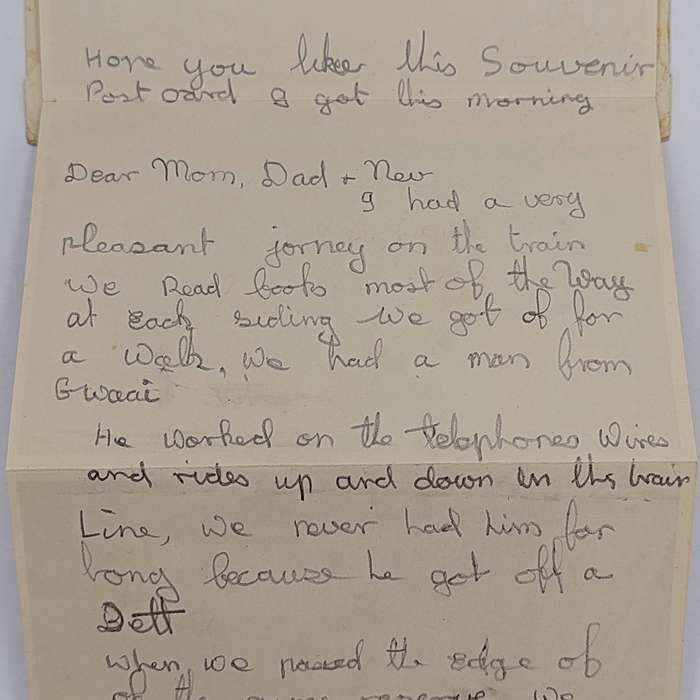 Hope you likes this Souvenir
Post card I got this morning
Dear Mom, Dad + Nev
I had a very
pleasant jorney on the train
we Read books most of the Way
at each siding we got of for
a Walk, we had a man from
Gwaai
He worked on the telephones Wires
and rides up and down in the train
Line, we never had him for
long because he got off a
Dett
when we passed the edge of
of the game reserve. We